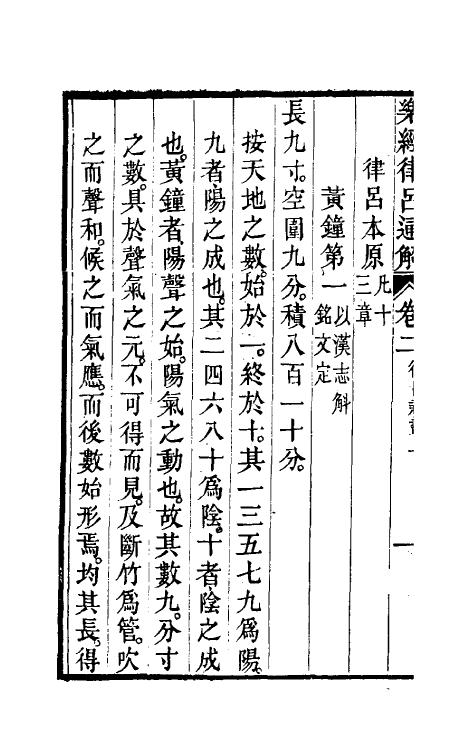 樂經律呂通解 卷二 一
律呂本原 凡十三章
黃鐘第一 以漢志斛銘文定
長九寸。空圍九分。積八百一十分。
按天地之數。始於一。終於十。其一三五七九爲陽。
九者陽之成也。其二四六八十爲陰。十者陰之成
也。黃鐘者陽聲之始。陽氣之動也。故其數九。分寸
之數。具於聲氣之元。不可得而見。及斷竹爲管。吹
之而聲和。候之而氣應。而後數始形焉。均其長。得